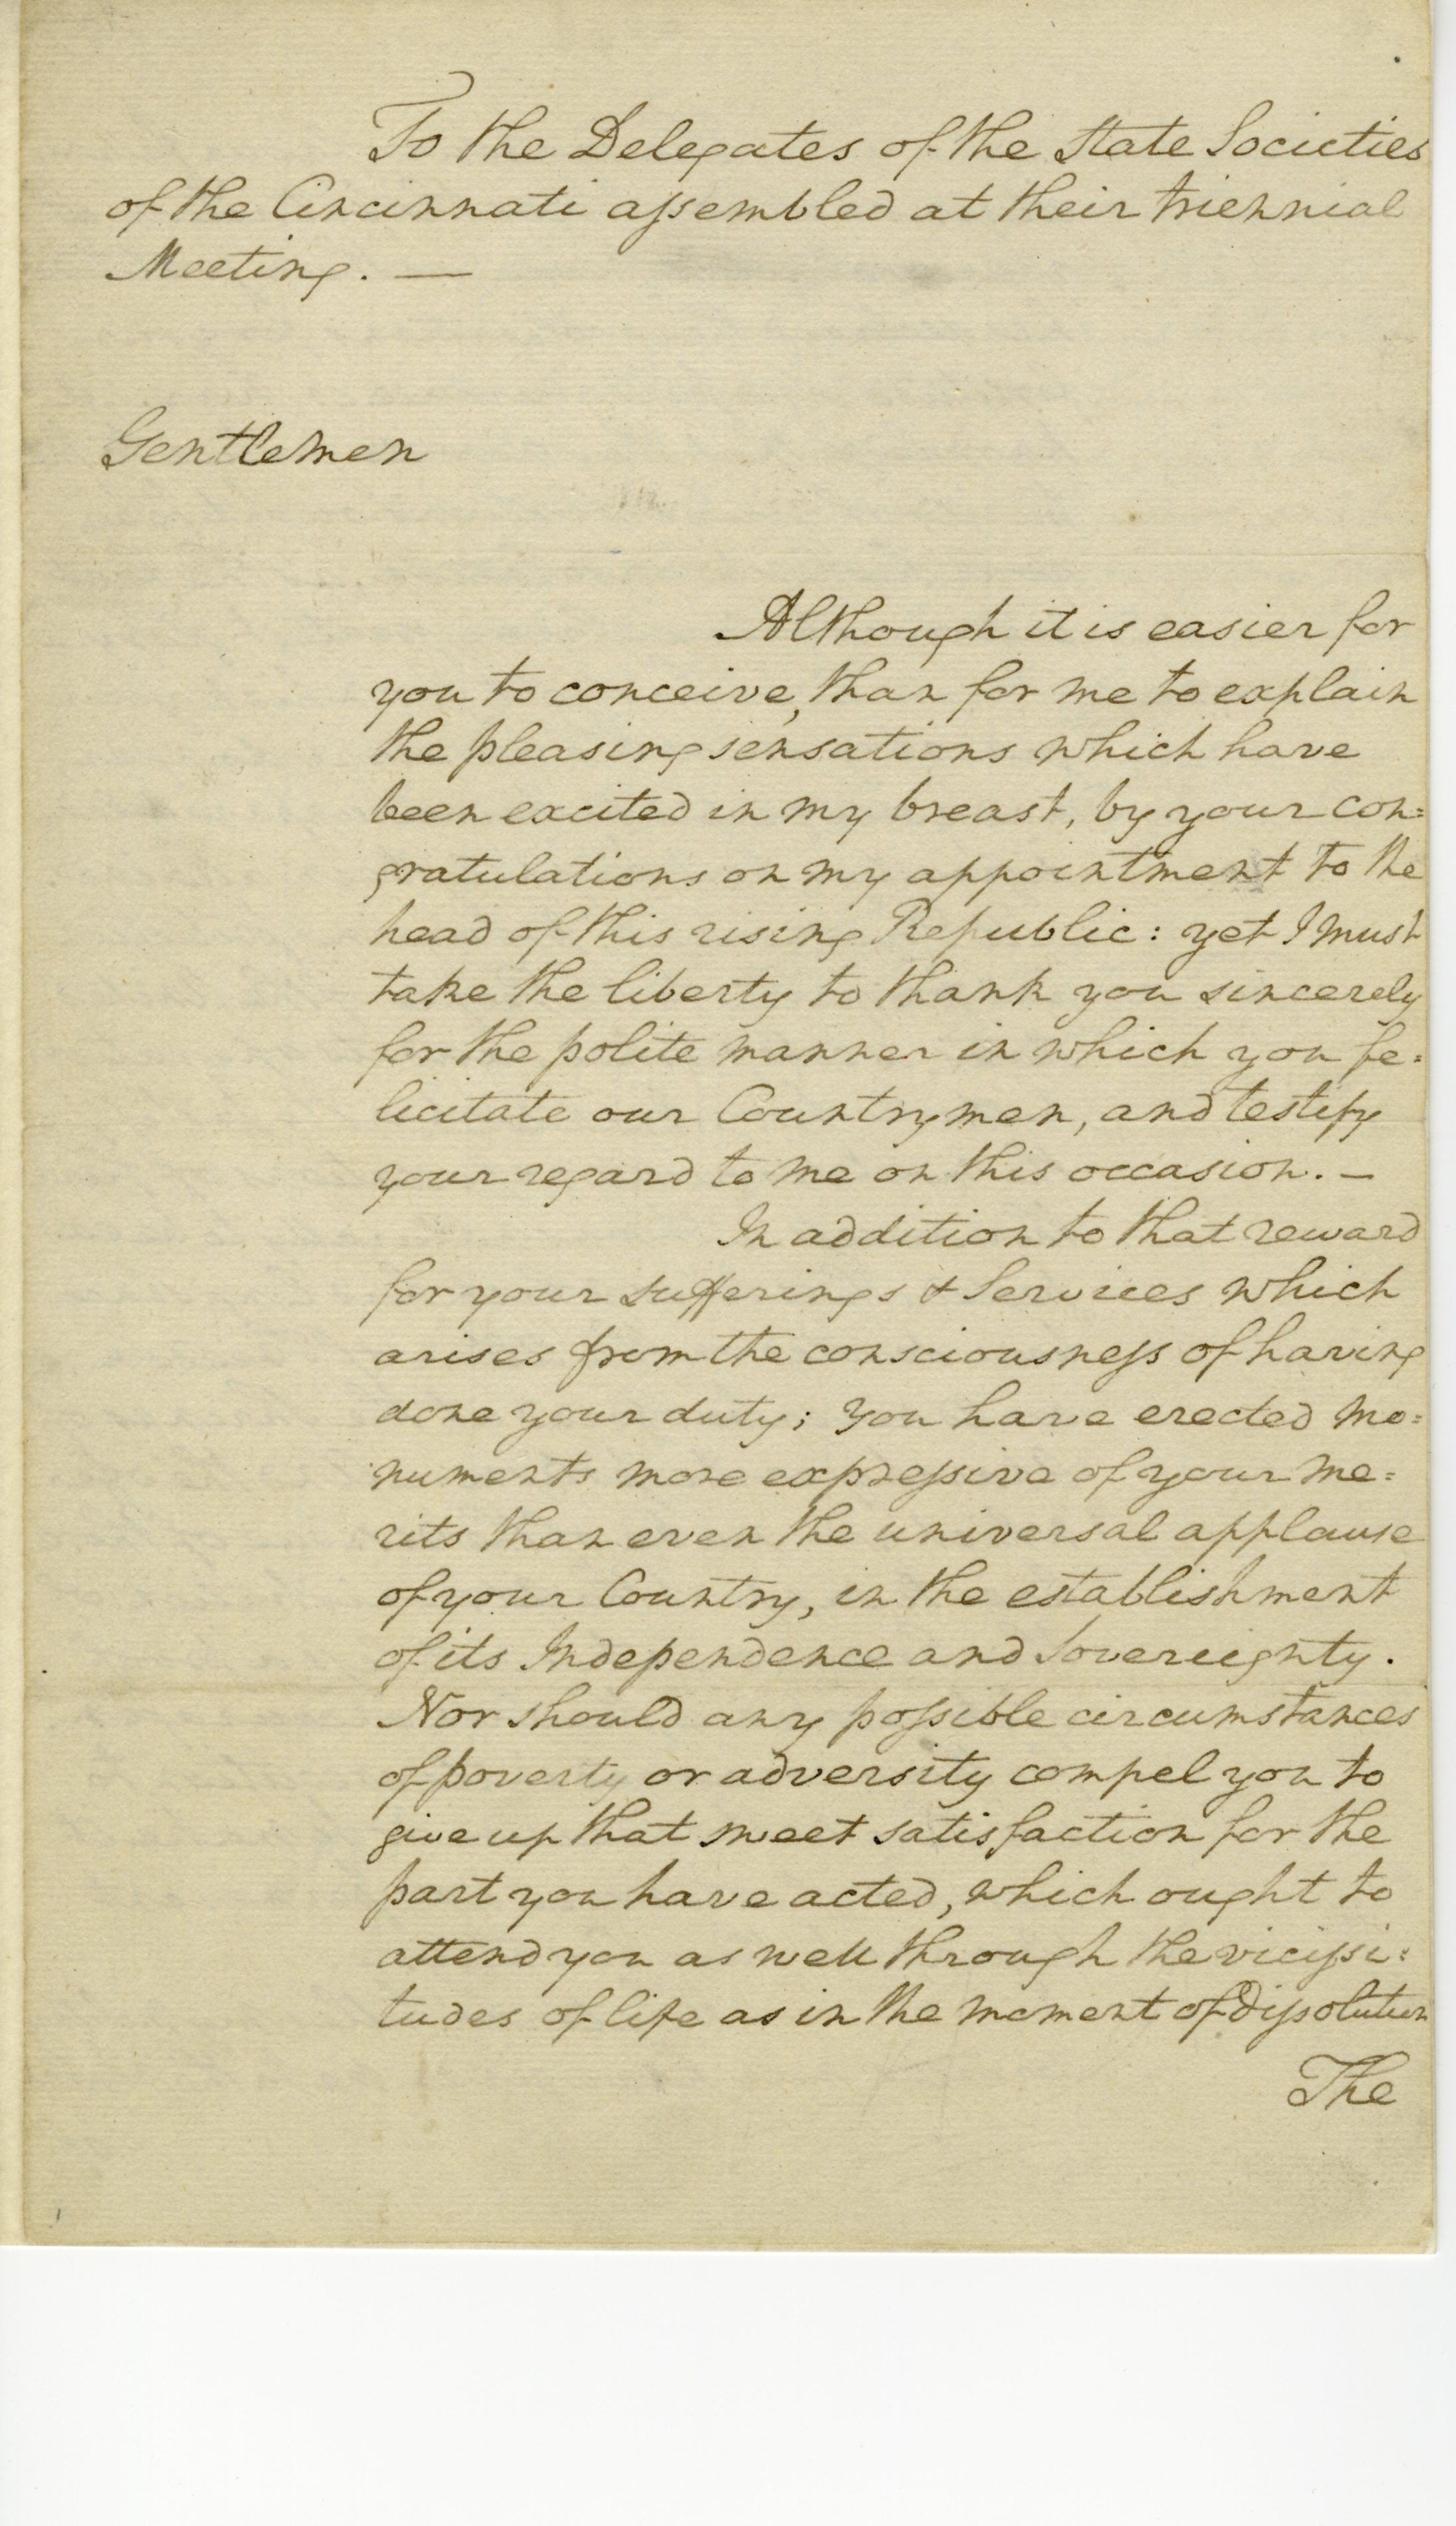 To the Delegates of the State Societies
of the Cincinnati assembled at their triennial
Meeting. —
Gentlemen
Although it is easier for
you to conceive, than for me to explain
the pleasing sensations which have
been excited in my breast, by your con=
gratulations on my appointment to the
head of this rising Republic: yet I must
take the liberty to thank you sincerely
for the polite manner in which you fe=
licitate our Countrymen, and testify
your regard to me on this occasion. —
In addition to that reward
for your sufferings & Services which
arises from the consciousness of having
done your duty; you have erected mo=
numents more expressive of your me=
rits than even the universal applause
of your Country, in the establishment
of its Independence and Sovereignty.
Nor should any possible circumstances
of poverty or adversity compel you to
give up that sweet satisfaction for the
part you have acted, which ought to
attend you as well through the vicissi=
tudes of life as in the moment of Dissolution
The